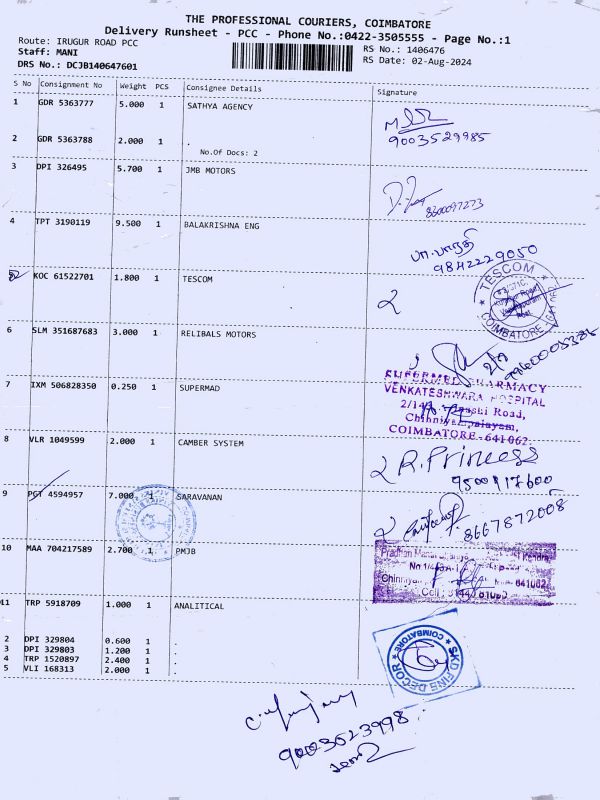 THE PROFESSIONAL COURIERS, COIMBATORE
Delivery Runsheet - PCC - Phone No.:0422-3505555 - Page No.:1
Route: IRUGUR ROAD PCC
RS No.: 1406476
Staff: MANI
RS Date: 02-Aug-2024
DRS No.: DCJB140647601
S No Consignment No Weight PCS Consignee Details Signature
1 GDR 5363777 5.000 1 SATHYA AGENCY
9003529985
2 GDR 5363788 2.000 1 .
No.Of Docs: 2
3 DPI 326495 5.700 1 JMB MOTORS
8600097273
4 TPT 3190119 9.500 1 BALAKRISHNA ENG
பா.பாரதி
9842229050
KOC 61522701 1.800 1 TESCOM
TESCOM
COIMBATORE
6 SLM 351687683 3.000 1 RELIBALS MOTORS
7 IXM 506828350 0.250 1 SUPERMAD
SUPERMED PHARMACY
VENKATESHWARA HOSPITAL
Road,
COIMBATORE-641 062.
8 VLR 1049599 2.000 1 CAMBER SYSTEM
R.Princess
9500117600
9 PGT 4594957 7.000 1 SARAVANAN
8667872008
10 MAA 704217589 2.700 1 PMJB
Kendra
641062
11 TRP 5918709 1.000 1 ANALITICAL
2 DPI 329804 0.600 1 .
3 DPI 329803 1.200 1 .
4 TRP 1520897 2.400 1 .
5 VLI 168313 2.000 1 .
SKD FINE DECOR
COIMBATORE
9003523998